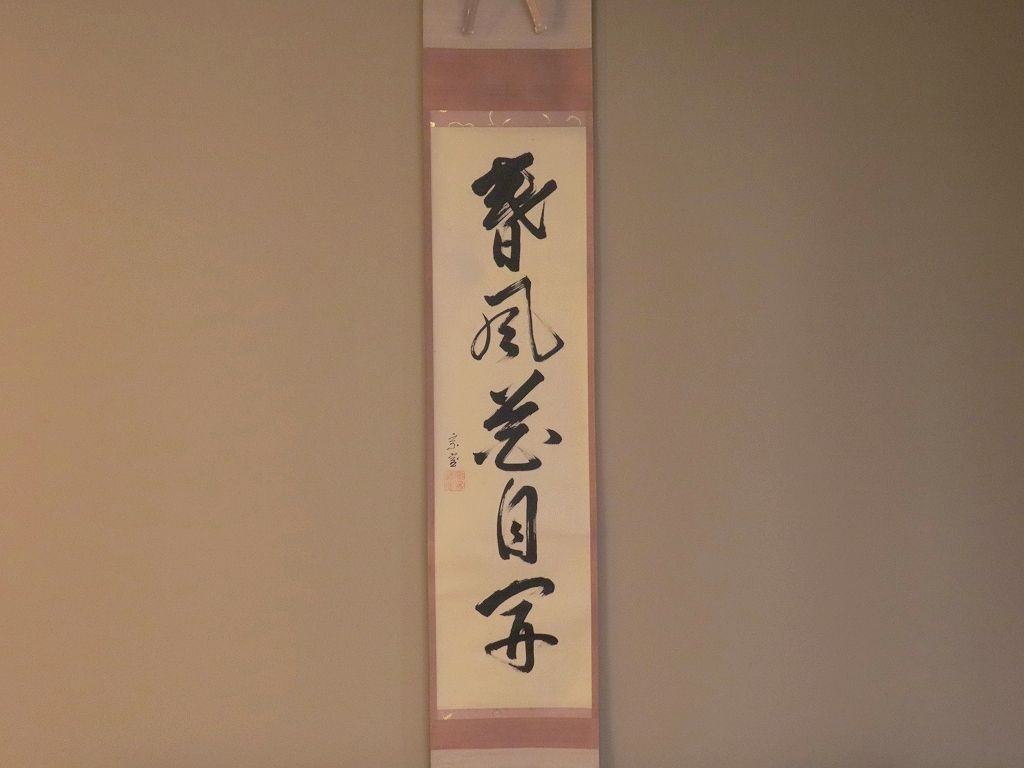 春風花自開